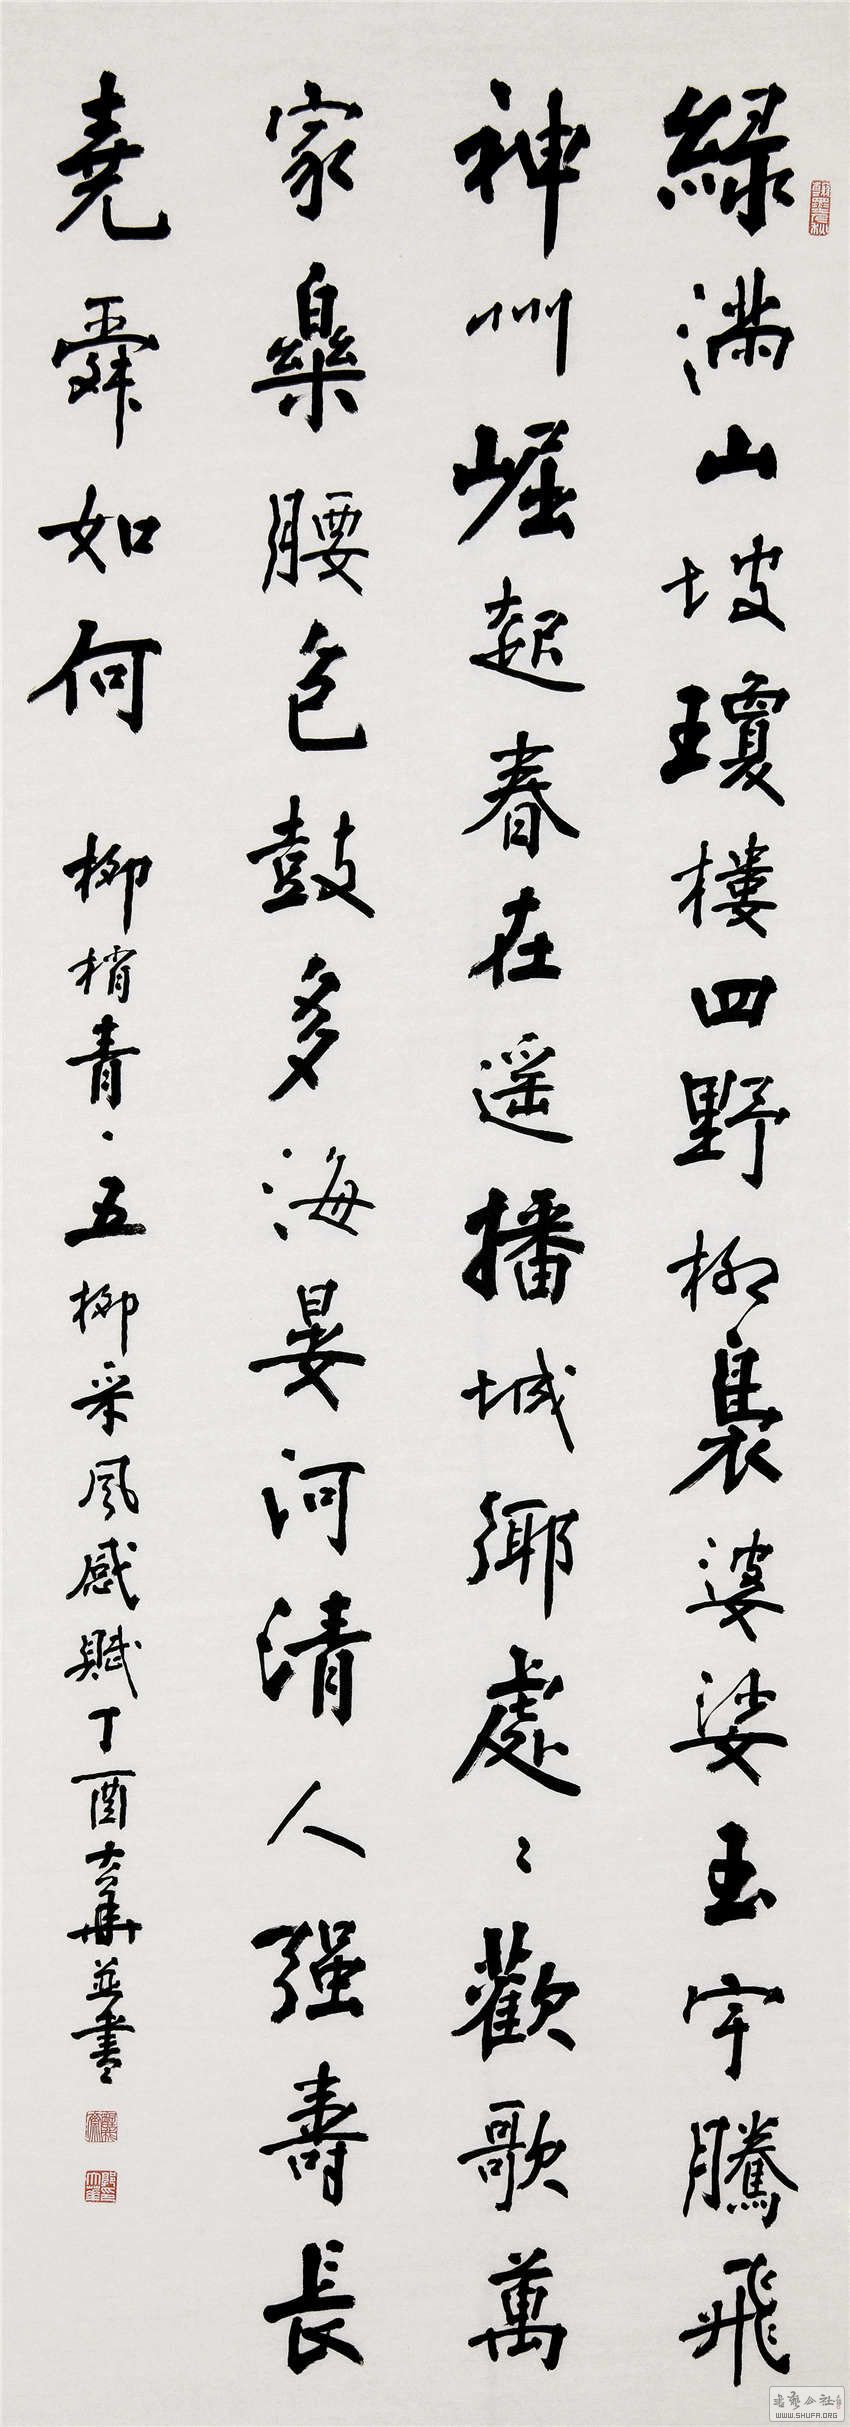 綠滿山坡瓊樓四野柳裊婆娑玉宇騰飛
神州崛起春在遥播城鄉處〻歡歌萬
家樂腰包鼓多海晏河清人强壽長
堯舜如何
柳梢青·五柳采風感賦丁酉大華並書
書藝公社
WWW.SHUFA.ORG